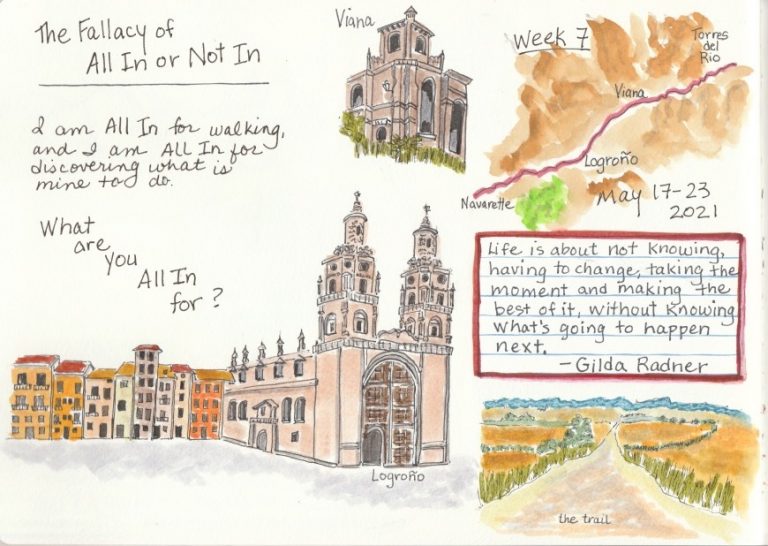 The Fallacy of
All In or Not In
I am All In for walking,
and I am All In for
discovering what is
mine to do.
What
are
you
All In
for?
Viana
Week 7
Torres
del
Rio
Viana
Logroño
Navarette
May 17-23
2021
Life is about not knowing,
having to change, taking the
moment and making the
best of it, without knowing
what's going to happen
next.
-Gilda Radner
Logroño
the trail